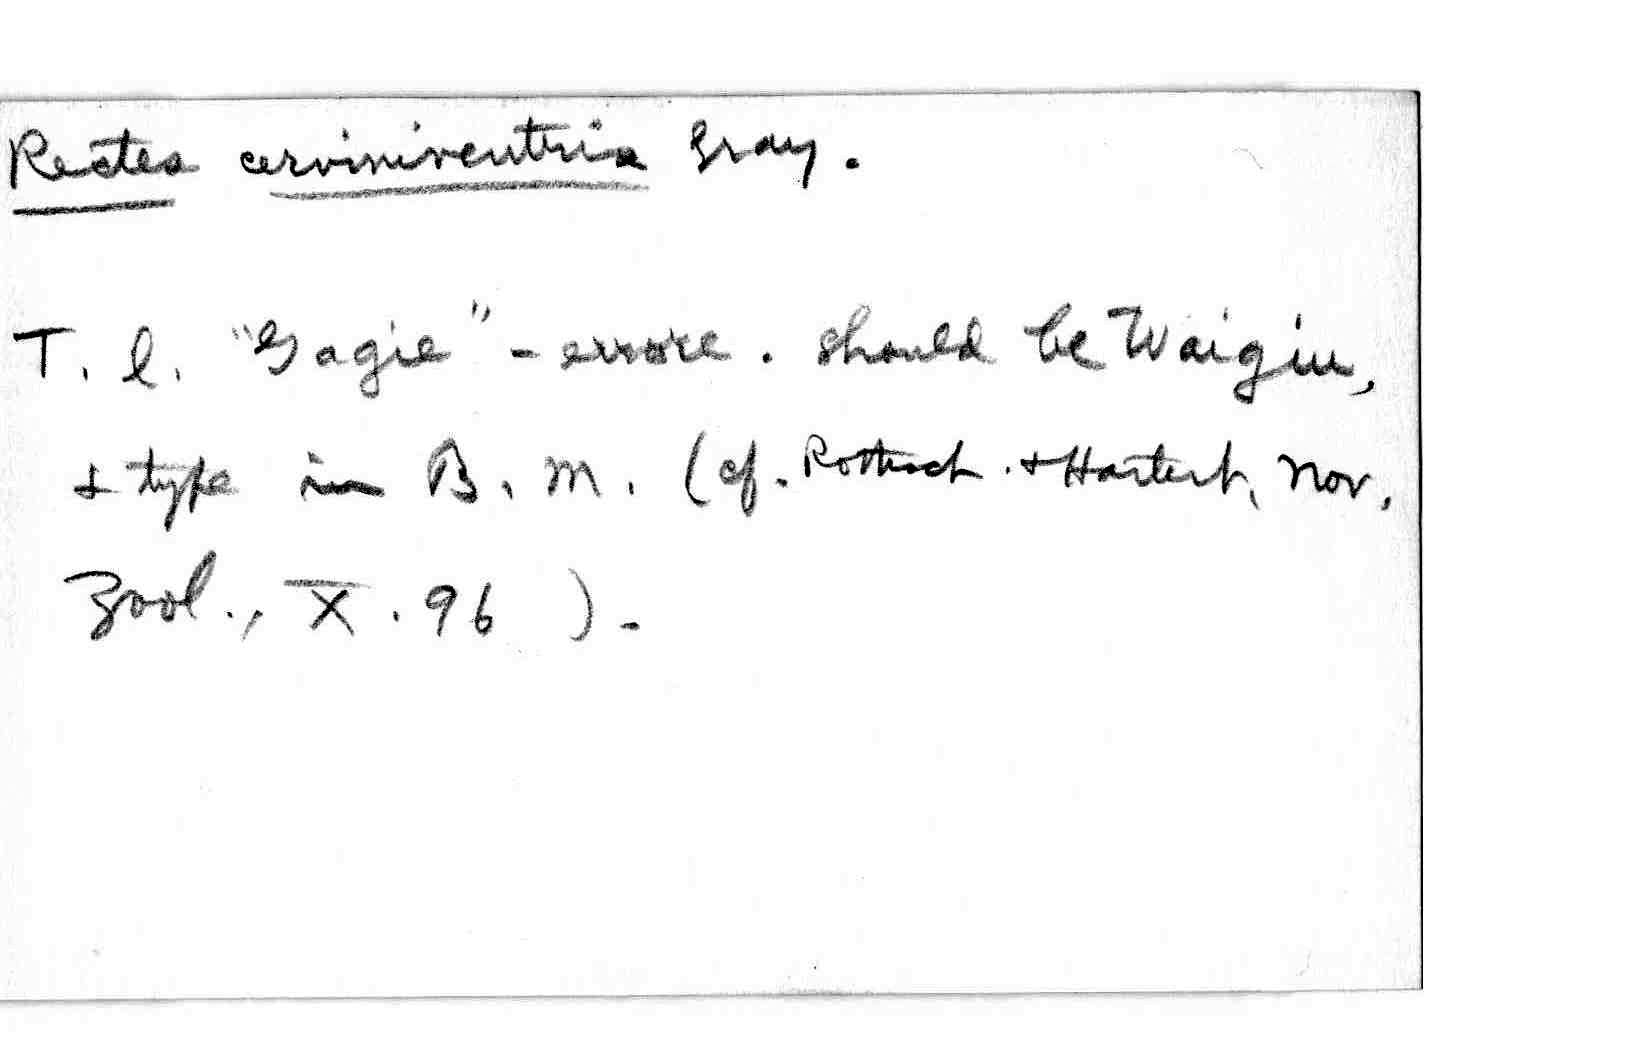 Rectes cerviniventris Gray.
T. l. "Gagie" - errore. should be Waigiu,
& type in B. M. (cf. Rothsch. & Hartert, Nov.
Zool., X. 96 ).